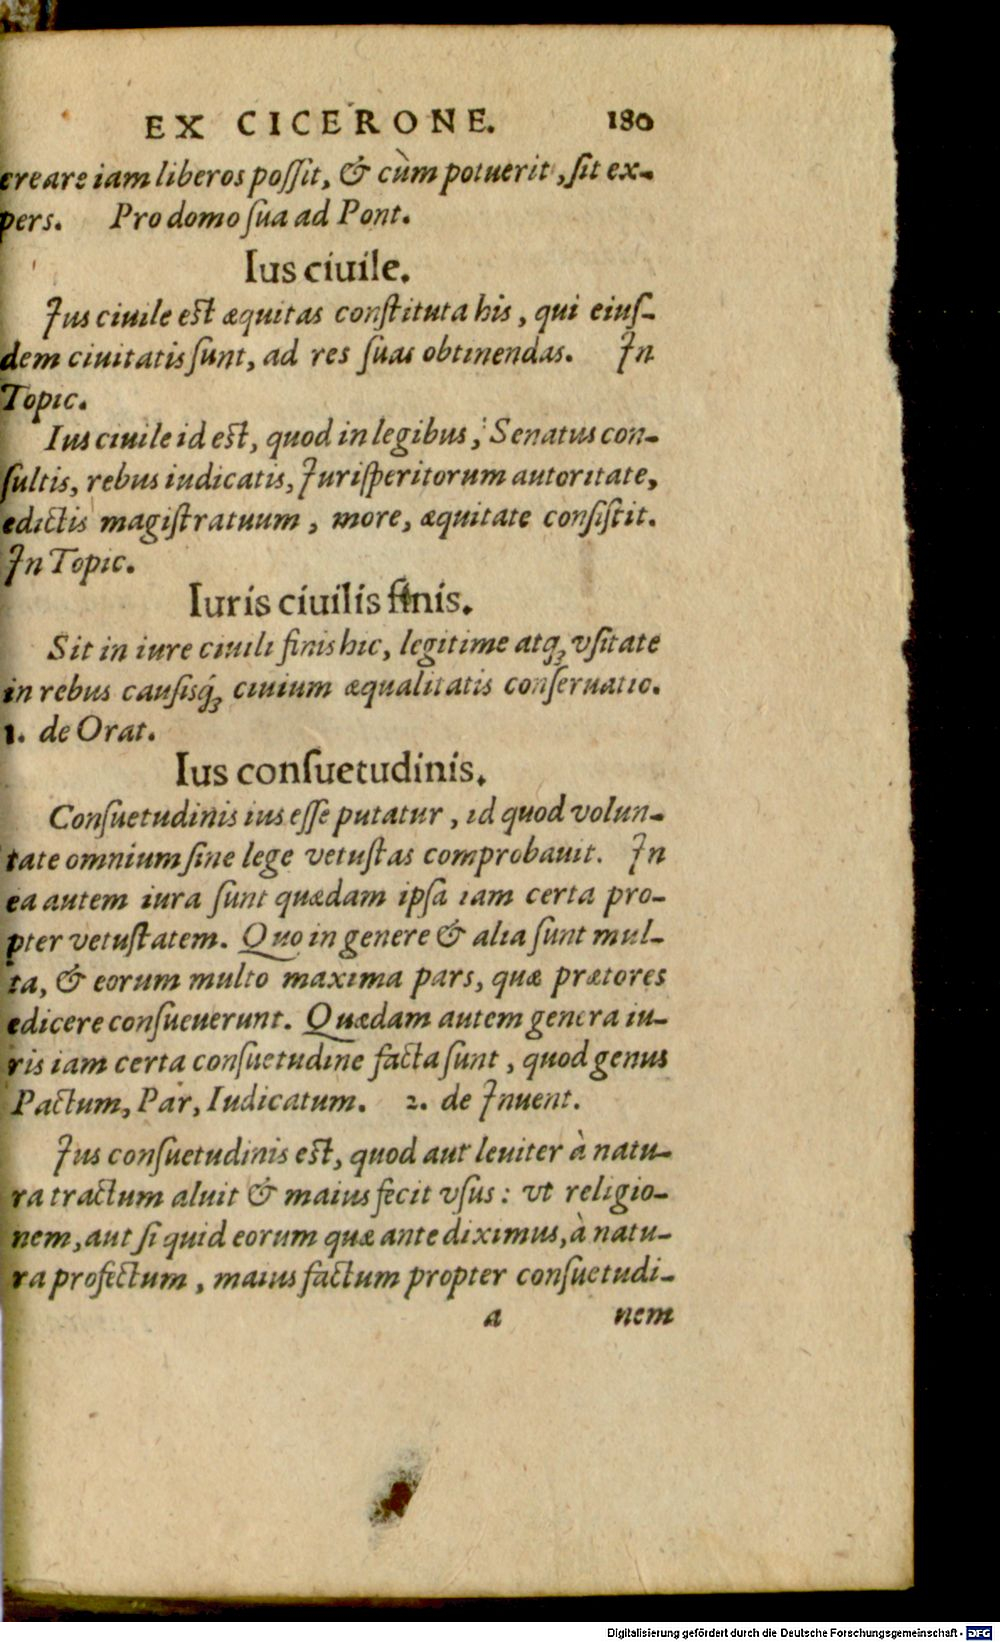 EX CICERONE. 180
creare iam liberos poſſit, & cùm potuerit, ſit ex-
pers. Pro domo ſua ad Pont.
Ius ciuile.
Ius ciuile est æquitas conſtituta his, qui eiuſ-
dem ciuitatis ſunt, ad res ſuas obtinendas. In
Topic.
Ius ciuile id est, quod in legibus, Senatus con-
ſultis, rebus iudicatis, Iuriſperitorum autoritate,
edictis magiſtratuum, more, æquitate conſiſtit.
In Topic.
Iuris ciuilis finis.
Sit in iure ciuili finis hic, legitime atq́ꝫ vſitate
in rebus cauſisq́ꝫ ciuium æqualitatis conſeruatio.
1. de Orat.
Ius conſuetudinis.
Conſuetudinis ius eſſe putatur, id quod volun-
tate omnium ſine lege vetuſtas comprobauit. In
ea autem iura ſunt quædam ipſa iam certa pro-
pter vetuſtatem. Quo in genere & alia ſunt mul-
ta, & eorum multo maxima pars, quæ prætores
edicere conſueuerunt. Quædam autem genera iu-
ris iam certa conſuetudine facta ſunt, quod genus
Pactum, Par, Iudicatum. 2. de Inuent.
Ius conſuetudinis est, quod aut leuiter à natu-
ra tractum aluit & maius fecit vſus: vt religio-
nem, aut ſi quid eorum quæ ante diximus, à natu-
ra profectum, maius factum propter conſuetudi-
a nem
Digitalisierung gefördert durch die Deutsche Forschungsgemeinschaft - DFG